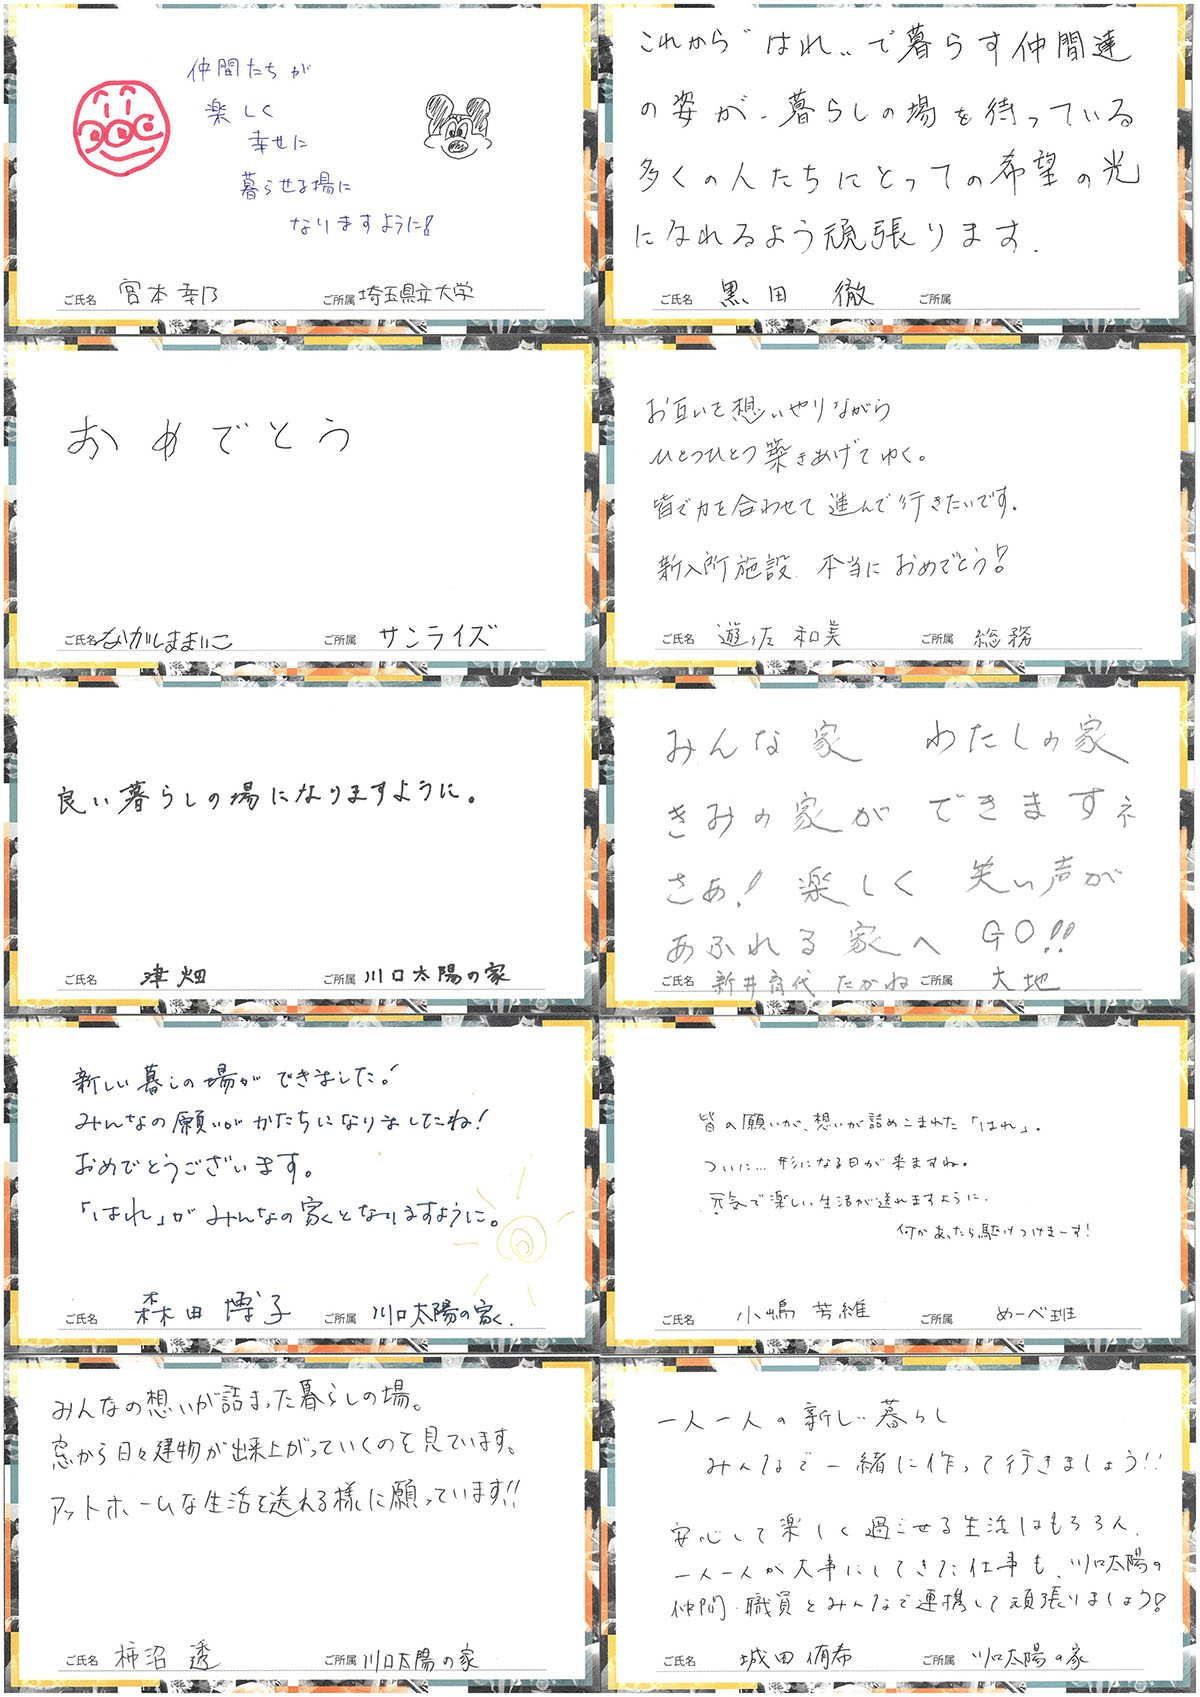 仲間たちが
楽しく
幸せに
暮らせる場に
なりますように!
ご氏名 宮本幸乃 ご所属 埼玉県立大学
これから“はれ”で暮らす仲間達
の姿が、暮らしの場を待っている
多くの人たちにとっての希望の光
になれるよう頑張ります.
ご氏名 黒田 徹 ご所属
おめでとう
ご氏名 ながしままいこ ご所属 サンライズ
お互いを想いやりながら
ひとつひとつ築きあげてゆく。
皆で力を合わせて進んで行きたいです。
新入所施設 本当におめでとう!
ご氏名 遊佐 和美 ご所属 総務
良い暮らしの場になりますように。
ご氏名 津畑 ご所属 川口太陽の家
みんな家 わたしの家
きみの家が できますネ
さあ! 楽しく 笑い声が
あふれる家へ GO!!
ご氏名 新井育代 たかね ご所属 大地
新しい暮しの場ができました!
みんなの願いがかたちになりましたね!
おめでとうございます。
「はれ」がみんなの家となりますように。
ご氏名 森田博子 ご所属 川口太陽の家.
皆の願いが、想いが詰めこまれた「はれ」。
ついに…形になる日が来ますね。
元気で楽しい生活が送れますように.
何かあったら駆けつけまーす!
ご氏名 小嶋 芳維 ご所属 めーべ班
みんなの想いが詰まった暮らしの場。
窓から日々建物が出来上がっていくのを見ています。
アットホームな生活を送れる様に願っています!!
ご氏名 柿沼 透 ご所属 川口太陽の家
一人一人の新しい暮らし
みんなで一緒に作って行きましょう!!
安心して楽しく過ごせる生活はもちろん、
一人一人が大事にしてきた仕事も、川口太陽の
仲間・職員とみんなで連携して頑張りましょう!
ご氏名 城田 侑希 ご所属 川口太陽の家